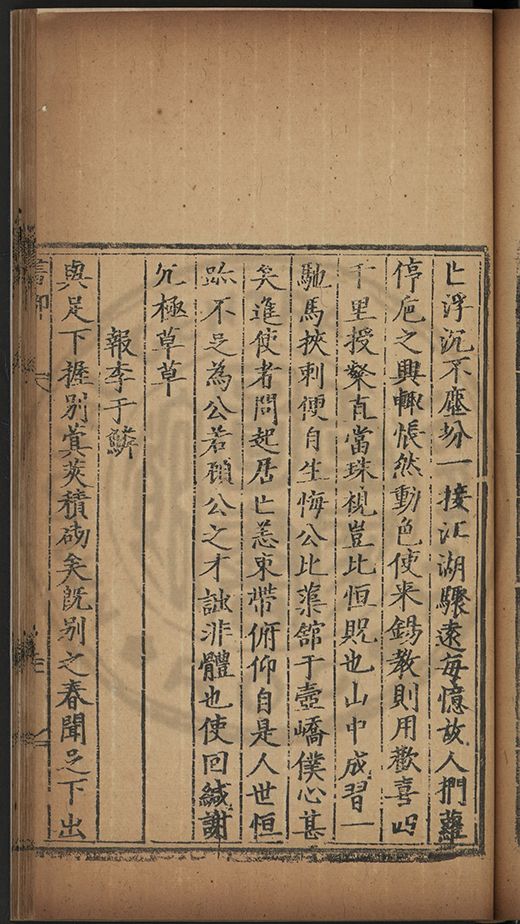 亡浮沉不塵坋一接江湖驟遠每憶故人捫蘿
停巵之興輙悵然動色使来錫教則用歡喜
千里授粲直當珠視豈比恒貺也山中成習一
馳馬挾刺便自生悔公比蕖舘于壺嶠僕心甚
矣進使者問起居亡恙束帶俯仰自是人世恒
跡不足為公若頋公之才詘非體也使回緘謝
冗極草草
報李于鱗
與足下握别蓂莢積砌矣既别之春聞足下出